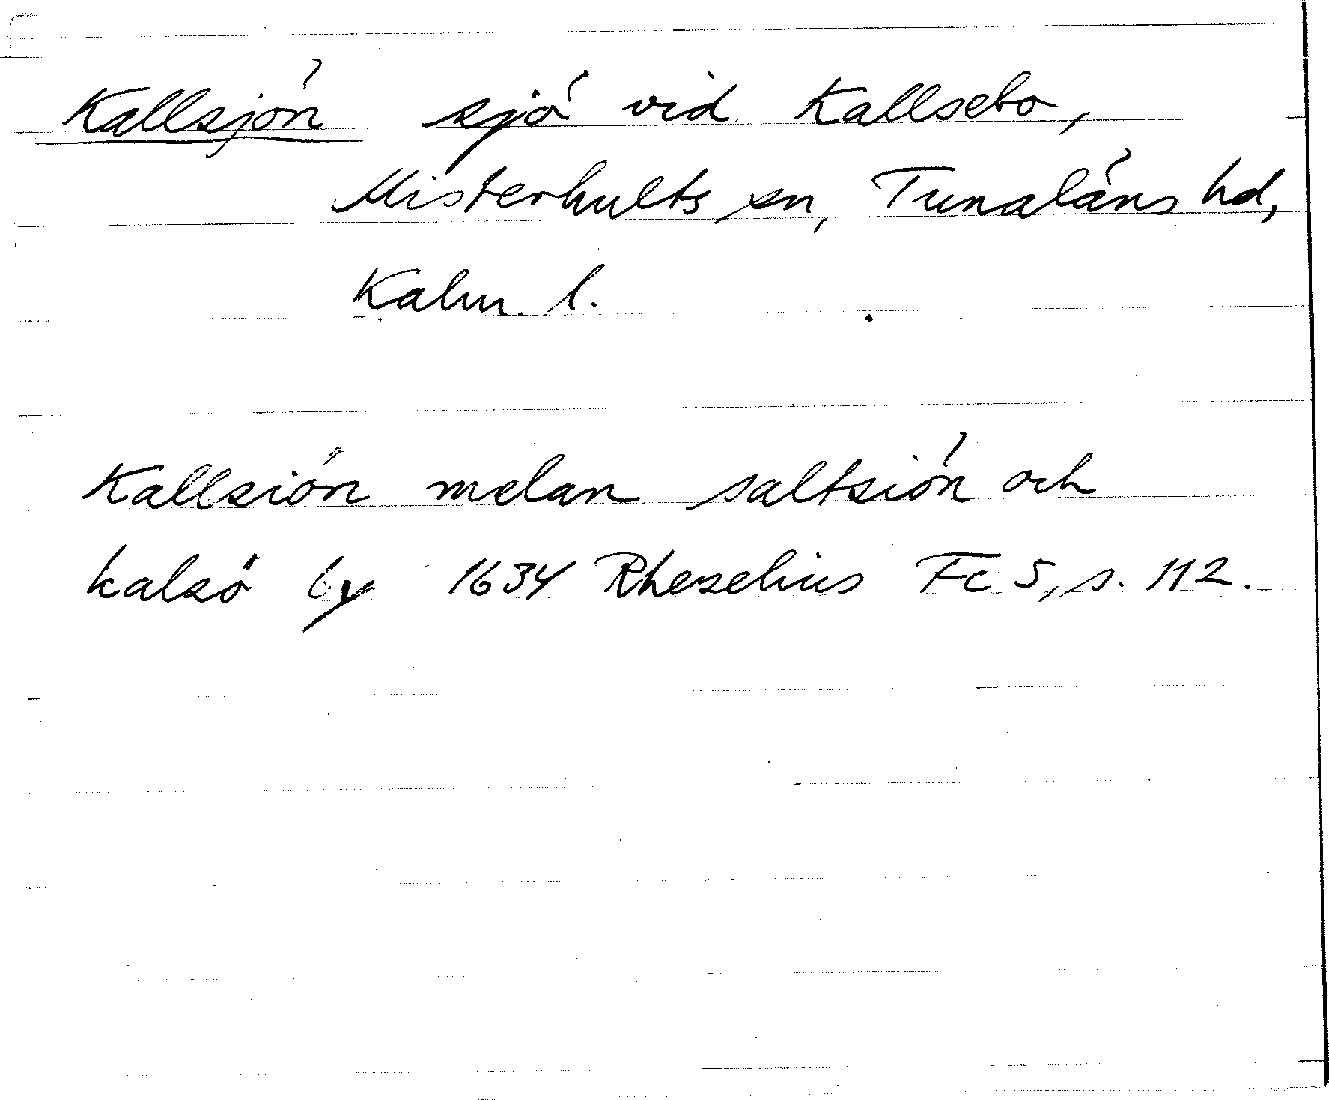 Kallsjön sjö vid Kallsebo,
Misterhults sn, Tunaläns hd,
Kalm. l.
Kallsiön melan saltsiön och
kalsö by 1634 Rhezelius Fc 5, s. 112.